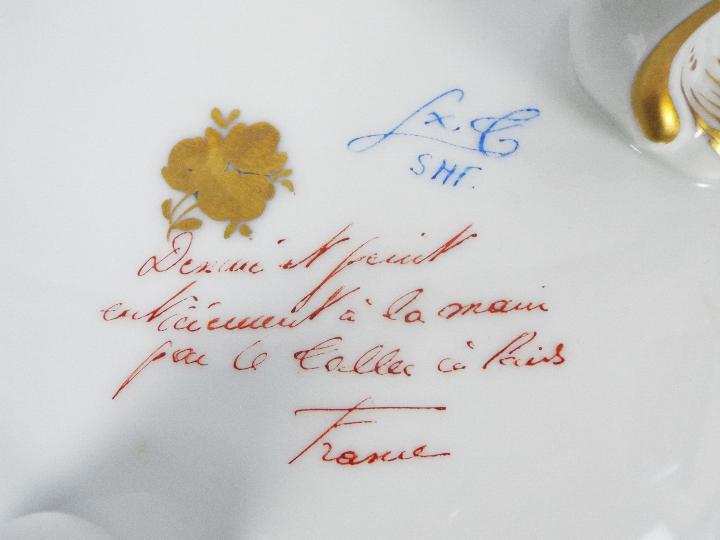 Lx.C
SHF.
Dessiné et peint
entièrement à la main
par Le Tallec à Paris
France